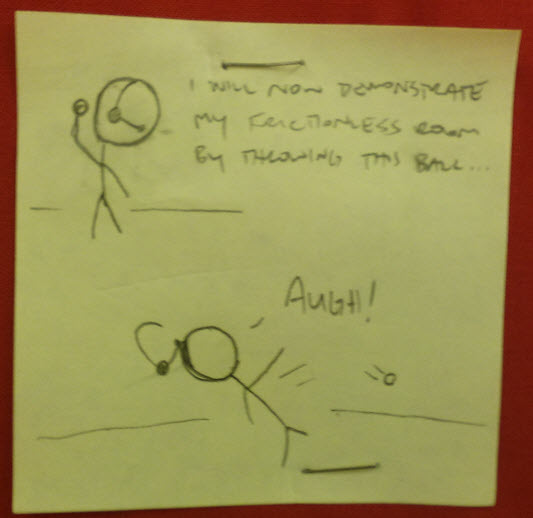 I WILL NOW DEMONSTRATE
MY FRICTIONLESS ROOM
BY THROWING THIS BALL...
AUGH!